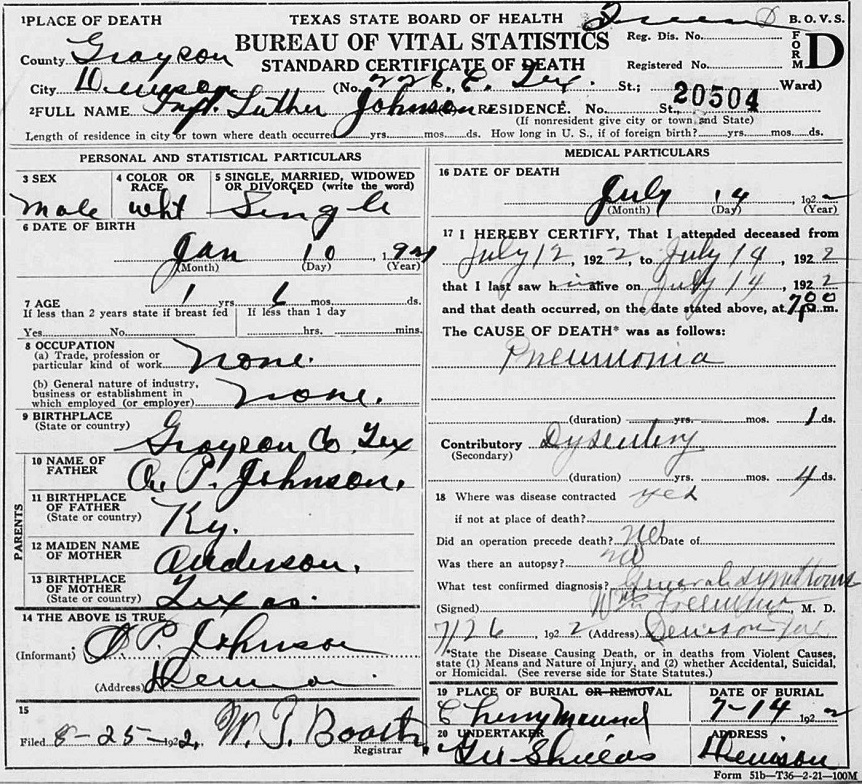 1 PLACE OF DEATH TEXAS STATE BOARD OF HEALTH B.O.V.S.
County Grayson BUREAU OF VITAL STATISTICS Reg. Dis. No. FORM D
STANDARD CERTIFICATE OF DEATH Registered No.
City Denison (No. 226 E. Tex. St.; Ward)
2 FULL NAME Inft. Luther Johnson RESIDENCE. No. St., 20504
(If nonresident give city or town and State)
Length of residence in city or town where death occurred yrs. mos. ds. How long in U. S., if of foreign birth? yrs. mos. ds.
PERSONAL AND STATISTICAL PARTICULARS
3 SEX 4 COLOR OR RACE 5 SINGLE, MARRIED, WIDOWED OR DIVORCED (write the word)
Male Wht Single
6 DATE OF BIRTH
Jan 10 1921
(Month) (Day) (Year)
7 AGE 1 yrs. 6 mos. ds.
If less than 2 years state if breast fed If less than 1 day
Yes No hrs. mins.
8 OCCUPATION
(a) Trade, profession or particular kind of work none.
(b) General nature of industry, business or establishment in which employed (or employer) none.
9 BIRTHPLACE
(State or country) Grayson Co Tex
PARENTS
10 NAME OF FATHER O. P. Johnson.
11 BIRTHPLACE OF FATHER
(State or country) Ky.
12 MAIDEN NAME OF MOTHER Anderson.
13 BIRTHPLACE OF MOTHER
(State or country) Texas.
14 THE ABOVE IS TRUE
(Informant) O P. Johnson
(Address) Denison
15
Filed 8-25-1922, W. J. Booth,
Registrar
MEDICAL PARTICULARS
16 DATE OF DEATH
July 14, 1922
(Month) (Day) (Year)
17 I HEREBY CERTIFY, That I attended deceased from
July 12, 1922, to July 14, 1922
that I last saw him alive on July 14, 1922
and that death occurred, on the date stated above, at 7 00 P.m.
The CAUSE OF DEATH* was as follows:
Pneumonia
(duration) yrs. mos. 1 ds.
Contributory Dysentery
(Secondary)
(duration) yrs. mos. 4 ds.
18 Where was disease contracted yes
if not at place of death?
Did an operation precede death? No Date of
Was there an autopsy? no
What test confirmed diagnosis? General symptoms
(Signed) Wm Freeman, M. D.
7/26 1922 (Address) Denison Tex
*State the Disease Causing Death, or in deaths from Violent Causes,
state (1) Means and Nature of Injury, and (2) whether Accidental, Suicidal,
or Homicidal. (See reverse side for State Statutes.)
19 PLACE OF BURIAL OR REMOVAL DATE OF BURIAL
Cherry Mound 7-14 1922
20 UNDERTAKER ADDRESS
Shields Denison
Form 51b—T36—2-21—100M